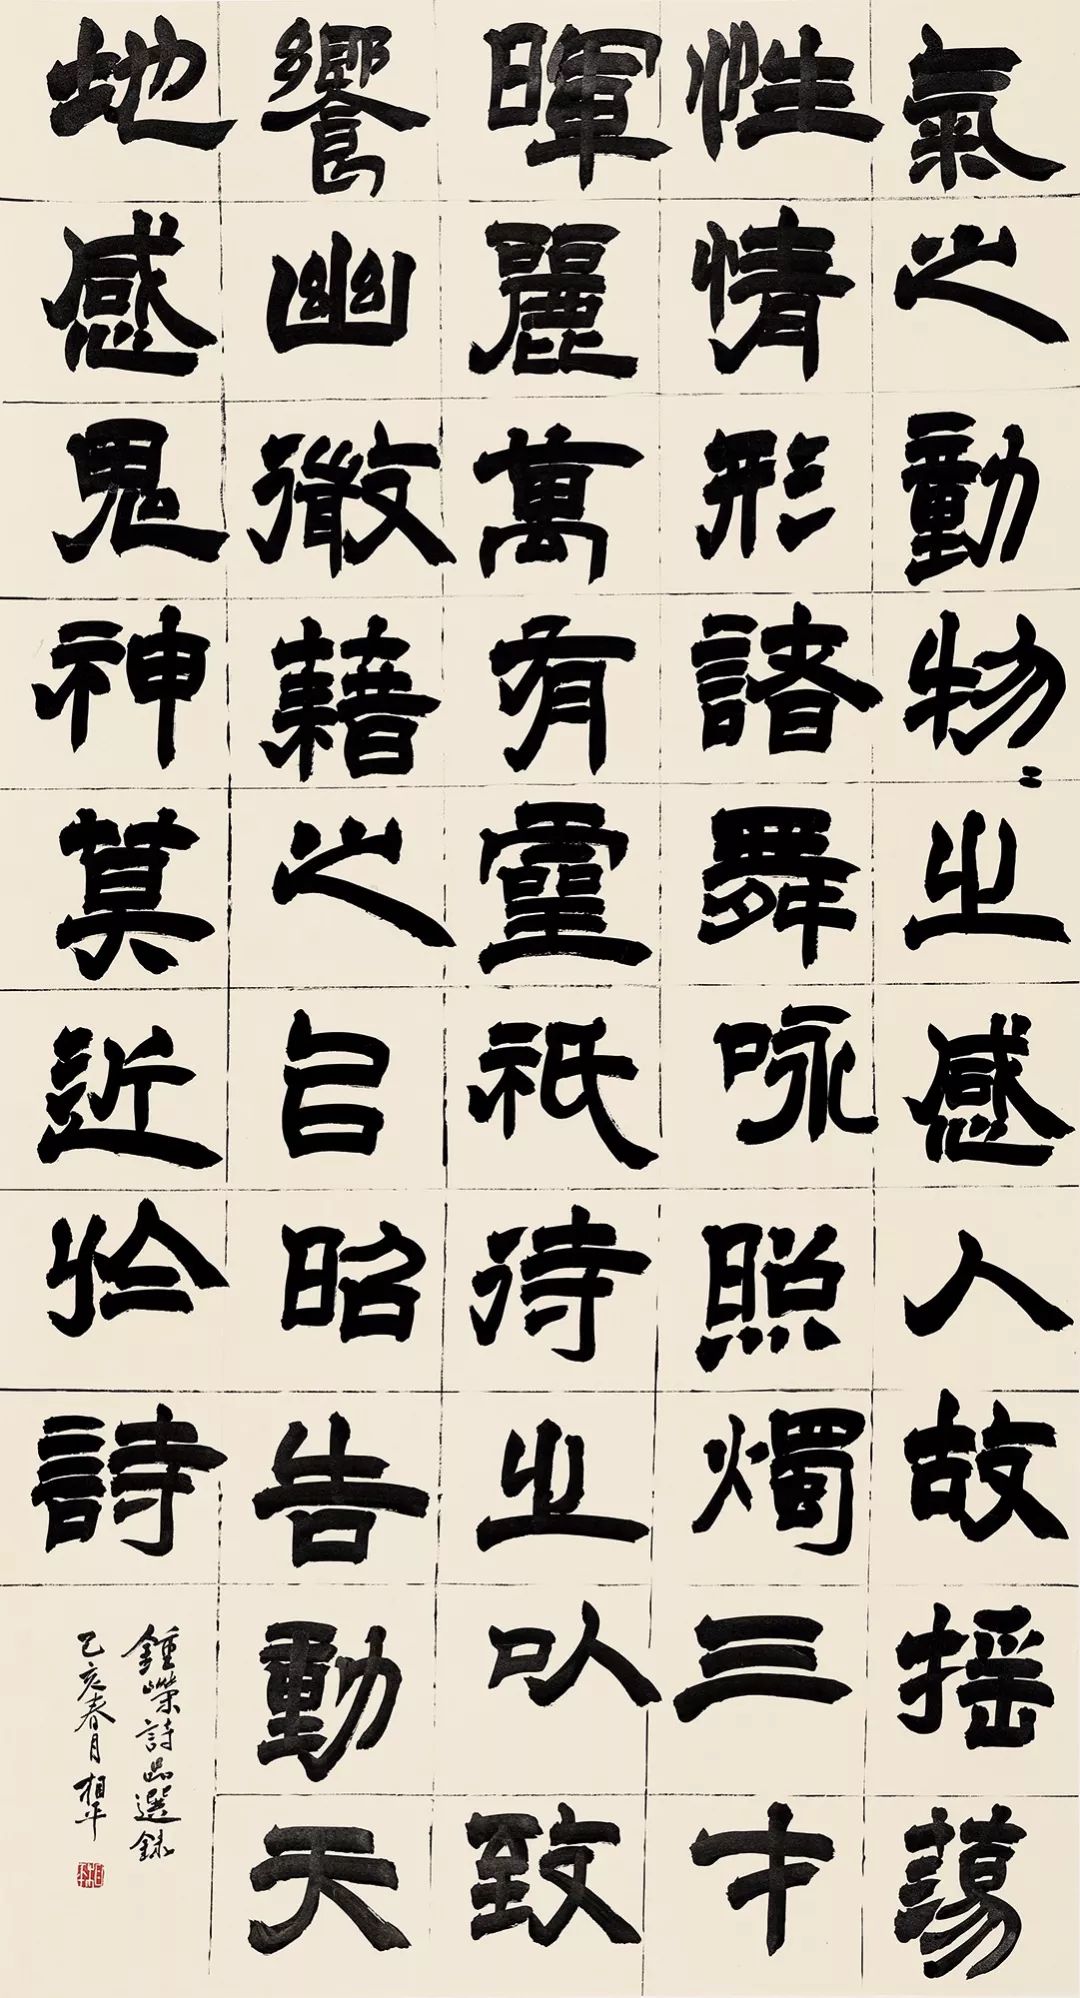 氣之動物〻之感人故搖蕩
性情形諸舞咏照燭三才
暉麗萬有靈祇待之以致
饗幽微藉之㠯昭告動天
地感鬼神莫近於詩
鍾嶸詩品選錄
己亥春月相平